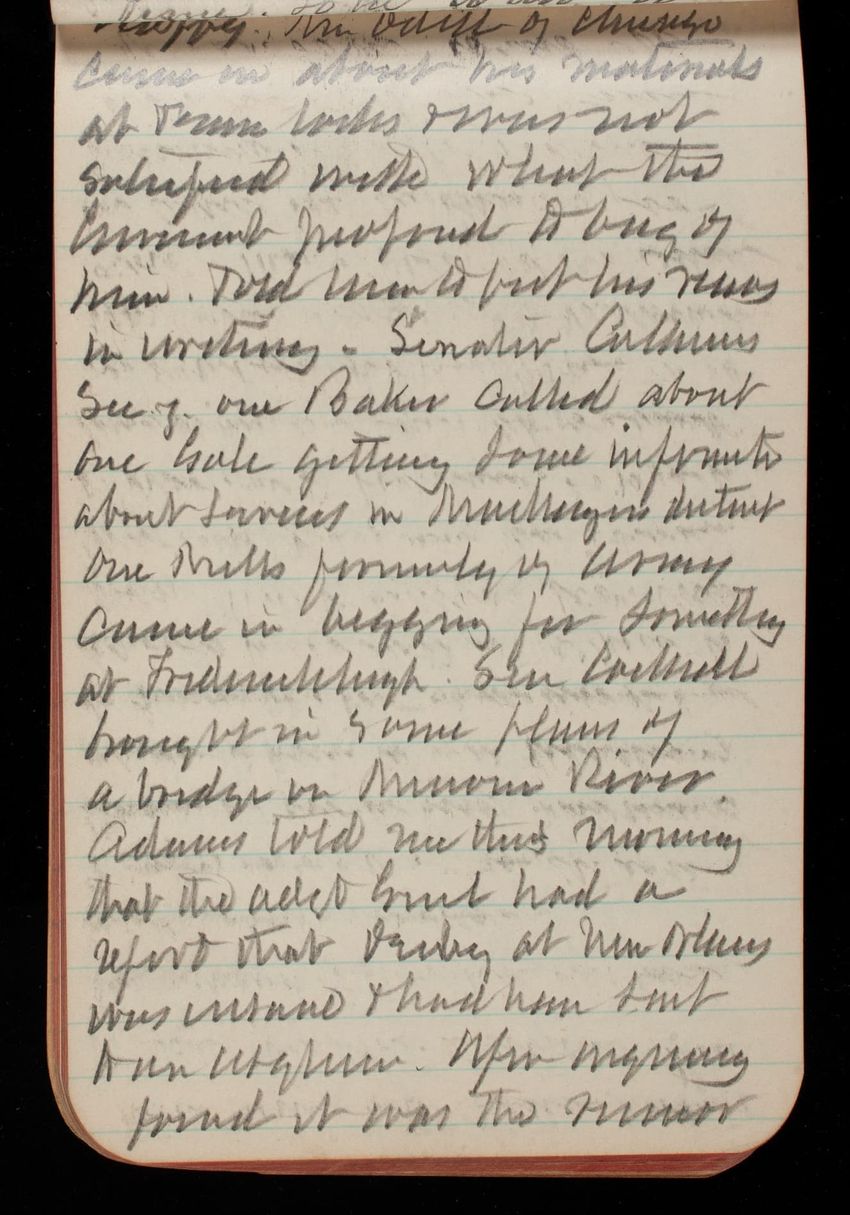 of Chicago
came in about his materials
at Texan locks & was not
satisfied with what the
Government proposed to buy of
him. Told him to put his views
in writing - Senator Cullum's
Secy. one Baker called about
one Gale getting some informatn
about services in Muskegon district
One Mills formerly of Army
came in begging for something
at Fredericksburgh. Sen Cockrell
brought in some plans of
a bridge on Missouri River.
Adams told me this morning
that the adgt Genl had a
report that at New Orleans
was insane & had been sent
to an asylum. After inquiring
found it was the rumor